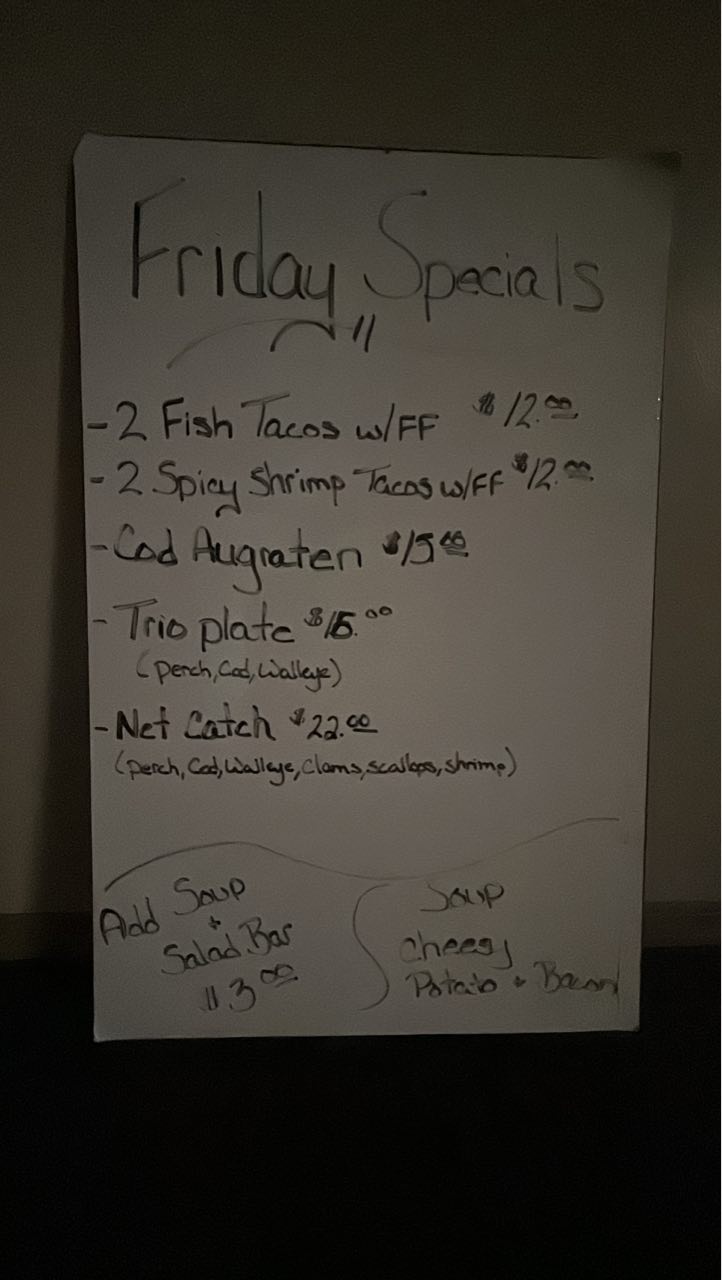 Friday Specials
- 2 Fish Tacos w/FF $12.00
- 2 Spicy Shrimp Tacos w/FF $12.00
- Cod Augraten $15.00
- Trio plate $15.00
(perch, Cod, Walleye)
- Net Catch $22.00
(perch, Cod, Walleye, Clams, scallops, shrimp)
Add Soup
+
Salad Bar
$3.00
Soup
Cheesy
Potato + Bacon